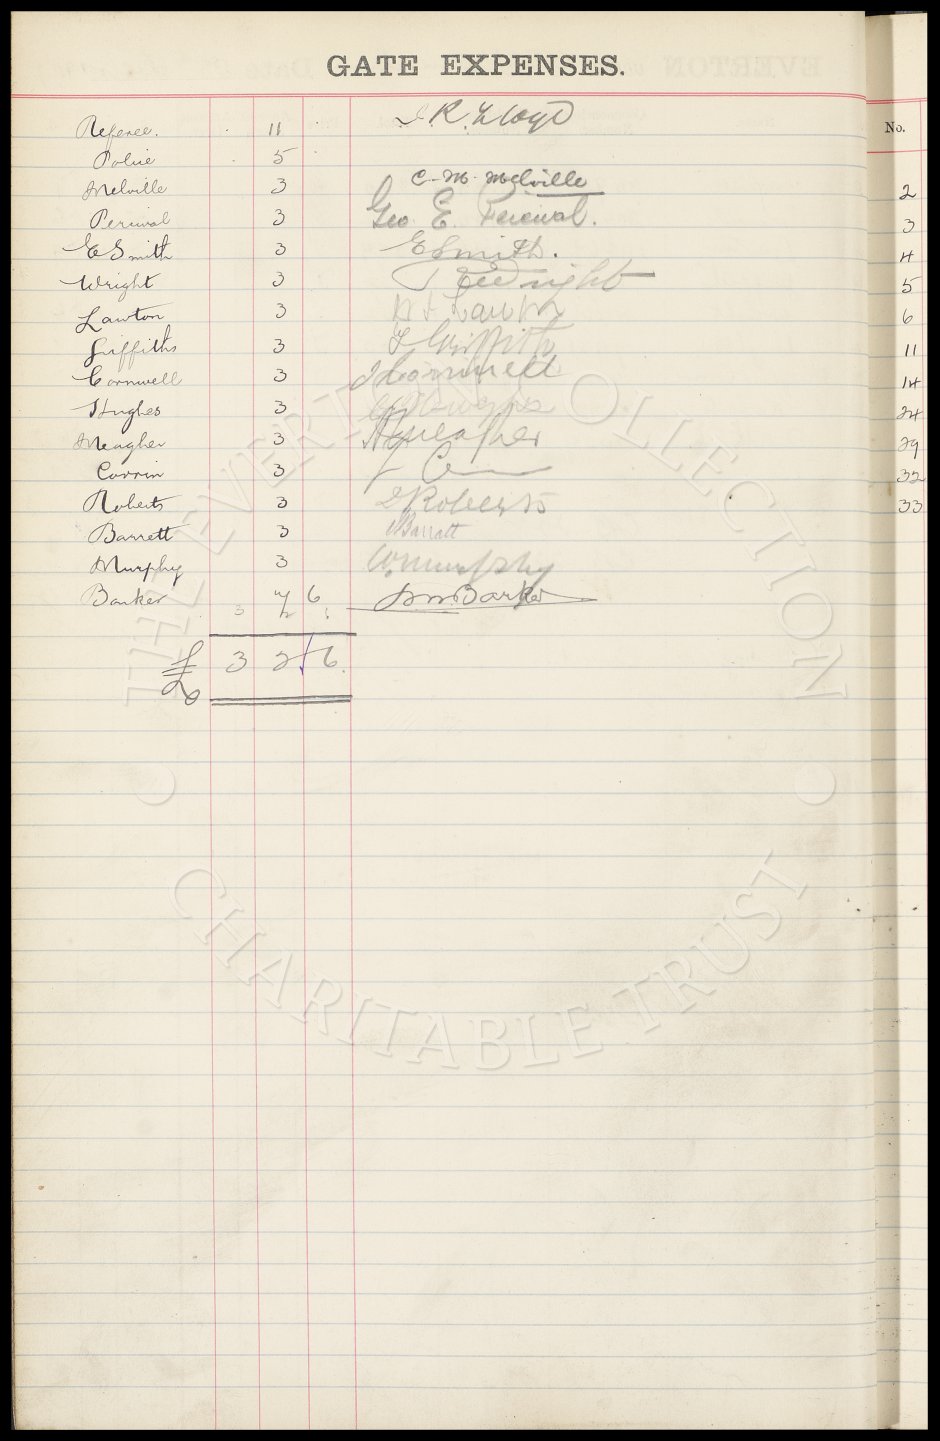 GATE EXPENSES.
Referee. 11 J. R. Lloyd
Police 5
Melville 3 C. M. Melville
Percival 3 Geo. E. Percival.
E Smith 3 E Smith.
Wright 3 Wright
Lawton 3 Lawton
Griffiths 3 Griffiths
Cornwell 3 Cornwell
Hughes 3 Hughes
Meagher 3 Meagher
Corrin 3
Roberts 3 Roberts
Barrett 3 Barratt
Murphy 3 W Murphy
Barker 7 6 Barker
£ 3 2 6
No.
2
3
4
5
6
11
14
24
29
32
33
THE EVERTON COLLECTION
CHARITABLE TRUST